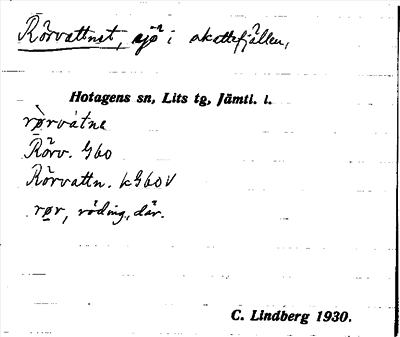 Rörvattnet, sjö i skattefjällen,
Hotagens sn, Lits tg, Jämtl. l.
rørvátnɛ
Rörv. G60
Rörvattn. kG60V
rør, röding, där.
C. Lindberg 1930.